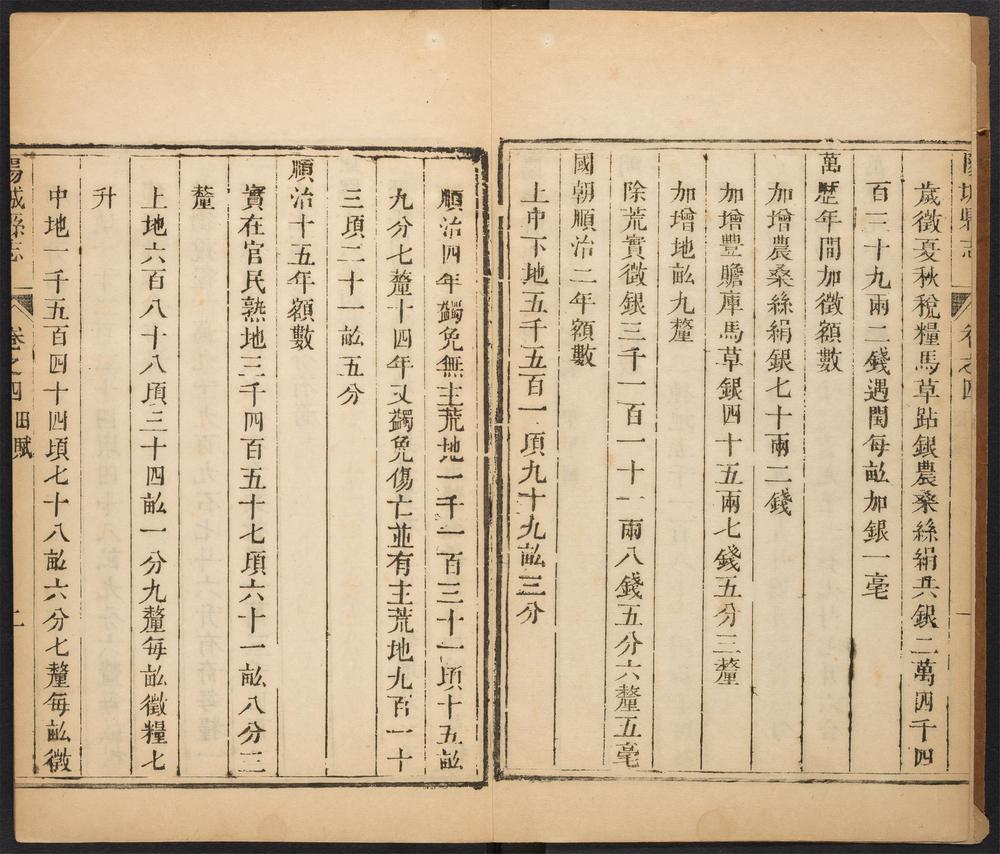 陽城縣志
卷之四
一
歲徵夏秋稅糧馬草跕銀農桑絲絹共銀二萬四千四
百二十九兩二錢遇閏每畝加銀一毫
萬歷年間加徵額數
加增農桑絲絹銀七十兩二錢
加增豐贍庫馬草銀四十五兩七錢五分三釐
加增地畝九釐
除荒實徵銀三千一百一十一兩八錢五分六釐五毫
國朝順治二年額數
上中下地五千五百一項九十九畝三分
順治四年蠲免無主荒地一千一百三十一頃十五畝
九分七釐十四年又蠲免傷亡並有主荒地九百一十
三頃二十一畝五分
順治十五年額數
實在官民熟地三千四百五十七頃六十一畝八分三
釐
上地六百八十八頃三十四畝一分九釐每畝徵糧七
升
中地一千五百四十四頃七十八畝六分七釐每畝徵
陽城縣志
卷之四 田賦
二